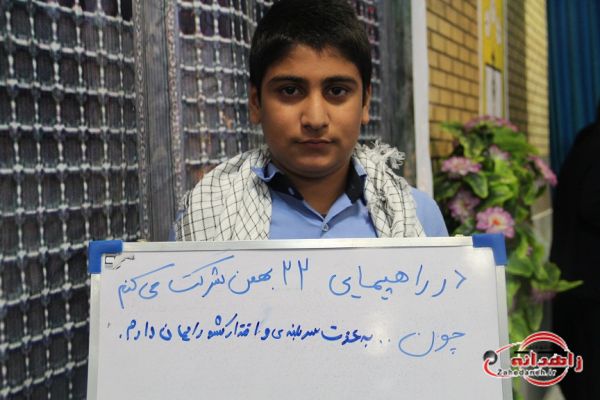 در راهپیمایی ۲۲ بهمن شرکت می کنم
چون .. به عزت سربلندی و اقتدار کشورم ایمان دارم.
زاهدانه
Zahedaneh.ir